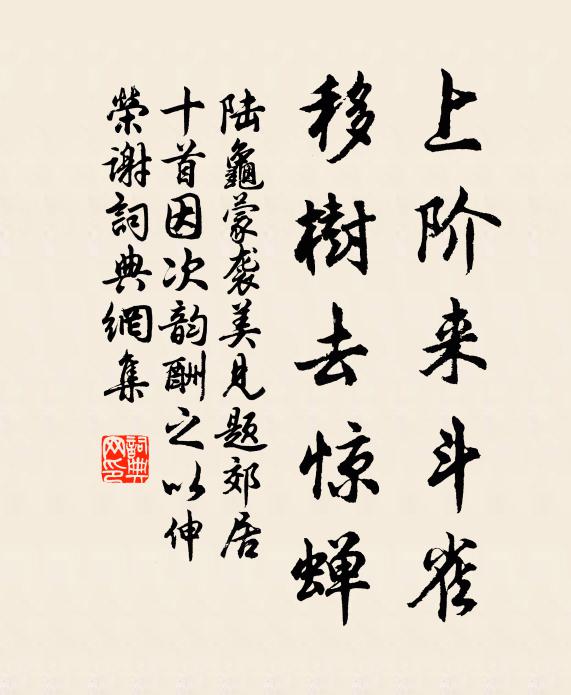 上阶来斗雀
移樹去惊蝉
陆龜蒙袭美见题郊居
十首因次韵酬之以伸
荣谢詞典網集
詞典网印